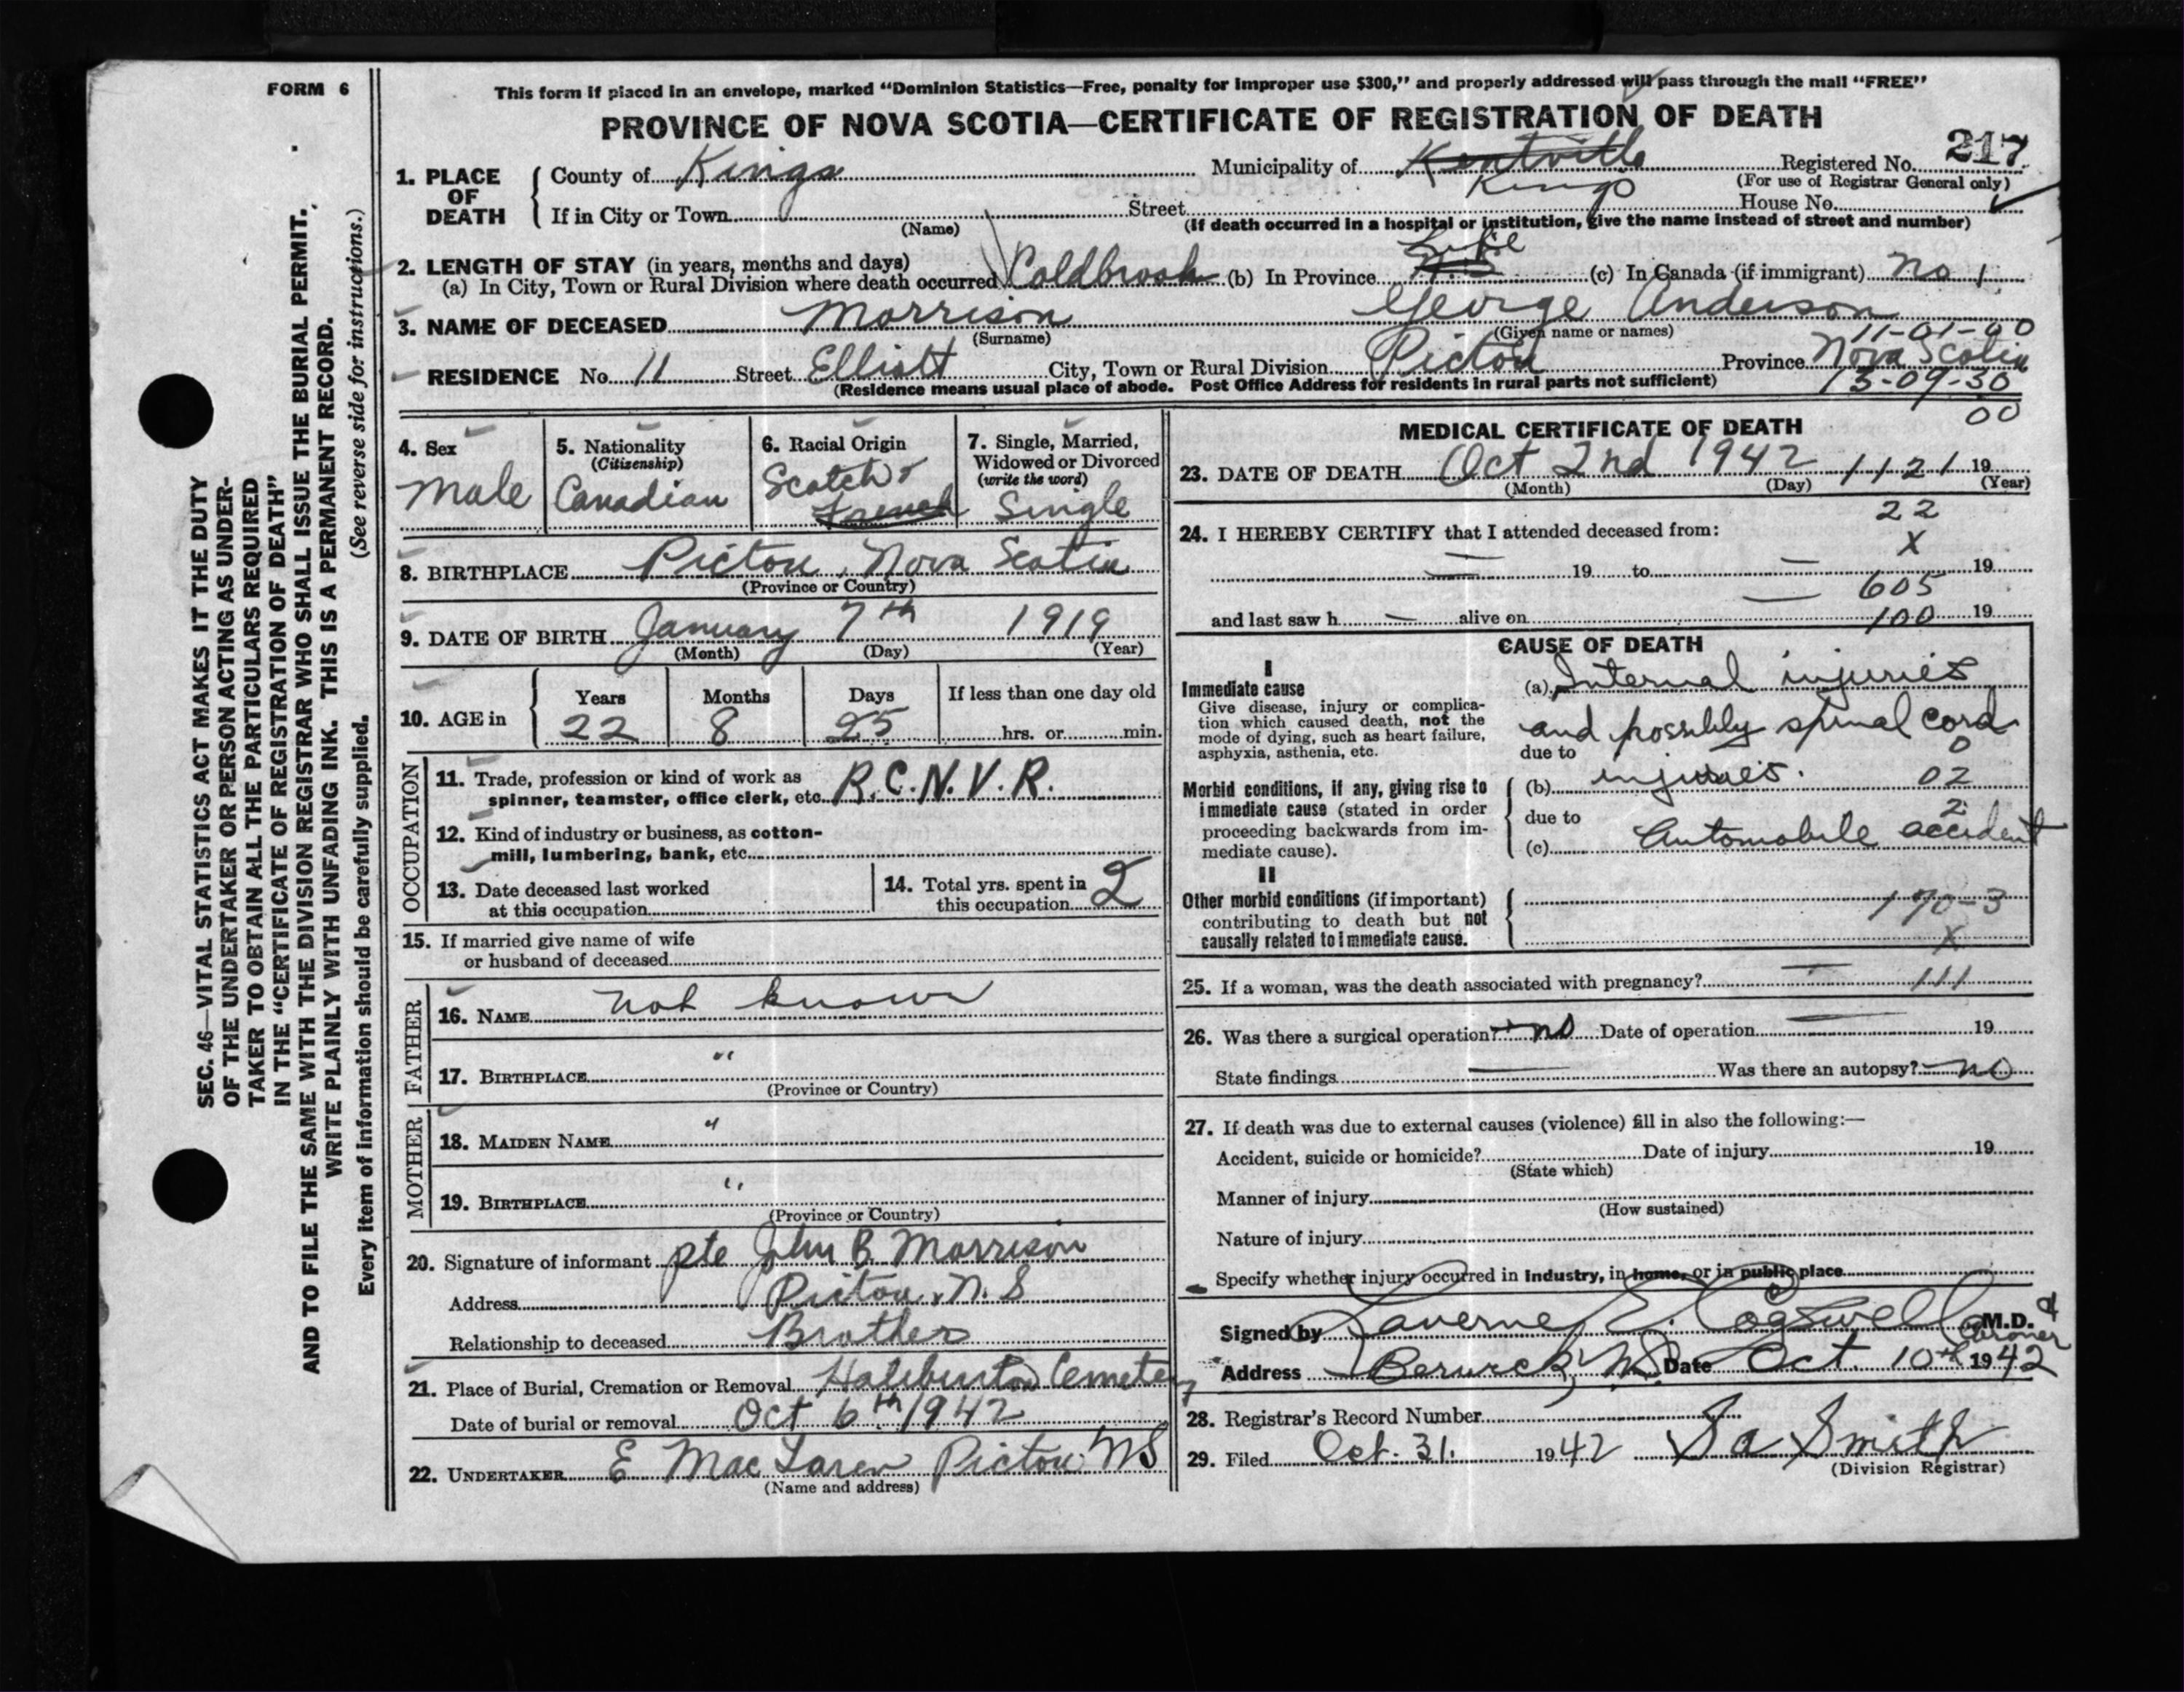 FORM 6
This form if placed in an envelope, marked "Dominion Statistics—Free, penalty for improper use $300," and properly addressed will pass through the mail "FREE"
PROVINCE OF NOVA SCOTIA—CERTIFICATE OF REGISTRATION OF DEATH
217
1. PLACE OF DEATH
County of Kings Municipality of Kentville Kings Registered No.
(For use of Registrar General only)
If in City or Town Street House No.
(Name) (If death occurred in a hospital or institution, give the name instead of street and number)
2. LENGTH OF STAY (in years, months and days)
(a) In City, Town or Rural Division where death occurred Coldbrook (b) In Province N.S Life (c) In Canada (if immigrant) no 1
3. NAME OF DECEASED Morrison George Anderson
(Surname) (Given name or names) 11-01-00
RESIDENCE No. 11 Street Elliott City, Town or Rural Division Pictou Province Nova Scotia
(Residence means usual place of abode. Post Office Address for residents in rural parts not sufficient) 13-09-30
00
4. Sex
Male
5. Nationality
(Citizenship)
Canadian
6. Racial Origin
Scotch &
French
7. Single, Married,
Widowed or Divorced
(write the word)
Single
8. BIRTHPLACE Pictou, Nova Scotia
(Province or Country)
9. DATE OF BIRTH January 7th 1919
(Month) (Day) (Year)
10. AGE in
Years Months Days If less than one day old
22 8 25 hrs. or min.
OCCUPATION
11. Trade, profession or kind of work as
spinner, teamster, office clerk, etc. R.C.N.V.R.
12. Kind of industry or business, as cotton-
mill, lumbering, bank, etc.
13. Date deceased last worked
at this occupation
14. Total yrs. spent in
this occupation 2
15. If married give name of wife
or husband of deceased
FATHER
16. NAME not known
17. BIRTHPLACE "
(Province or Country)
MOTHER
18. MAIDEN NAME "
19. BIRTHPLACE "
(Province or Country)
20. Signature of informant pte John B. Morrison
Address Pictou, N.S
Relationship to deceased Brother
21. Place of Burial, Cremation or Removal Haliburton Cemetery
Date of burial or removal Oct 6th 1942
22. UNDERTAKER E MacLaren Pictou NS
(Name and address)
MEDICAL CERTIFICATE OF DEATH
23. DATE OF DEATH Oct 2nd 1942 1121 19
(Month) (Day) (Year)
22
24. I HEREBY CERTIFY that I attended deceased from: X
— 19 to — 19
605
and last saw h — alive on — 100 19
CAUSE OF DEATH
I
Immediate cause
Give disease, injury or complica-
tion which caused death, not the
mode of dying, such as heart failure,
asphyxia, asthenia, etc.
(a) Internal injuries
and possibly spinal cord
due to 0
Morbid conditions, if any, giving rise to
immediate cause (stated in order
proceeding backwards from im-
mediate cause).
(b) injuries. 02
due to 2
(c) Automobile accident
II
Other morbid conditions (if important)
contributing to death but not
causally related to immediate cause.
170-3
X
25. If a woman, was the death associated with pregnancy? — 111
26. Was there a surgical operation? no Date of operation — 19
State findings — Was there an autopsy? no
27. If death was due to external causes (violence) fill in also the following:—
Accident, suicide or homicide? Date of injury 19
(State which)
Manner of injury
(How sustained)
Nature of injury
Specify whether injury occurred in Industry, in home, or in public place
Signed by Laverne E. Cogswell M.D. & Coroner
Address Berwick, N.S. Date Oct. 10th 1942
28. Registrar's Record Number
29. Filed Oct. 31. 1942 S a Smith
(Division Registrar)
SEC. 46—VITAL STATISTICS ACT MAKES IT THE DUTY
OF THE UNDERTAKER OR PERSON ACTING AS UNDER-
TAKER TO OBTAIN ALL THE PARTICULARS REQUIRED
IN THE "CERTIFICATE OF REGISTRATION OF DEATH"
AND TO FILE THE SAME WITH THE DIVISION REGISTRAR WHO SHALL ISSUE THE BURIAL PERMIT.
WRITE PLAINLY WITH UNFADING INK. THIS IS A PERMANENT RECORD.
Every item of information should be carefully supplied. (See reverse side for instructions.)